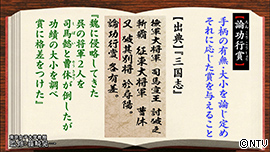 【論功行賞】
手柄の有無・大小を論じ定め
それに応じた賞を与えること
【出典】『三国志』
撫軍大将軍 司馬宣王 討破之
斬覇 征東大将軍 曹休
又破其別将 於尋陽
論功行賞 各有差
『魏に侵略してきた
呉の将軍2人を
司馬懿と曹休が倒したが
功績の大小を調べ
賞に格差をつけた』
©NTV